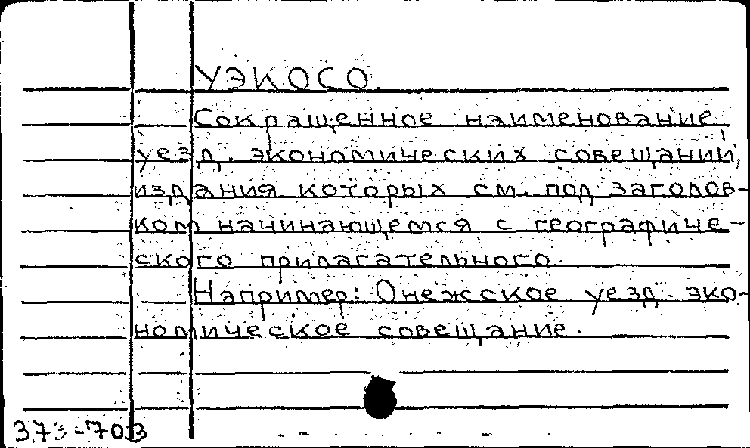 УЭКОСО.
Сокращенное наименование
уезд. экономических совещаний,
издания которых см. под заголов-
ком начинающемся с географиче-
ского прилагательного.
Например: Онежское уезд. эко-
номическое совещание.
373-703